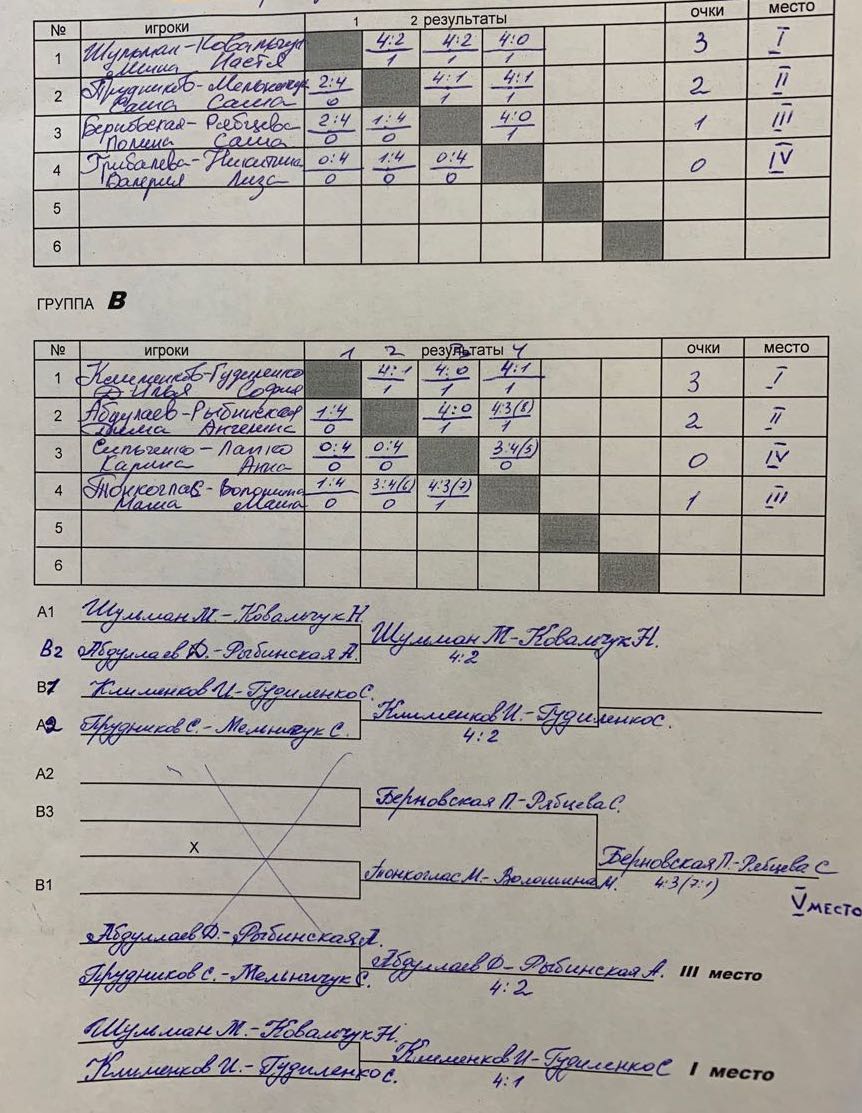 № игроки 1 2 результаты очки место
1 Шульман-Ковальчук 4:2 4:2 4:0 3 I
Миша Настя 1 1 1
2 Прудников-Мельничук 2:4 4:1 4:1 2 II
Саша Саша 0 1 1
3 Берновская-Рябцева 2:4 1:4 4:0 1 III
Полина Саша 0 0 1
4 Грибалева-Никитина 0:4 1:4 0:4 0 IV
Валерия Лиза 0 0 0
5
6
ГРУППА В
№ игроки 1 2 результаты 3 4 очки место
1 Клименков-Гудиленко 4:1 4:0 4:1 3 I
Илья София 1 1 1
2 Абдулаев-Рыбинская 1:4 4:0 4:3(8) 2 II
Дима Ангелина 0 1 1
3 Сильченко-Лапко 0:4 0:4 3:4(5) 0 IV
Карина Анна 0 0 0
4 Тонкоглас-Волошина 1:4 3:4(6) 4:3(7) 1 III
Маша Маша 0 0 1
5
6
А1 Шульман М-Ковальчук Н.
Шульман М-Ковальчук Н.
В2 Абдуллаев Д.-Рыбинская А. 4:2
В1 Клименков И-Гудиленко С.
Клименков И.-Гудиленко С.
А2 Прудников С.-Мельничук С. 4:2
А2
Берновская П.-Рябцева С.
В3
X
Берновская П.-Рябцева С
Тонкоглас М.-Волошина М. 4:3(7:1)
В1
V место
Абдуллаев Д.-Рыбинская А.
Абдуллаев Д-Рыбинская А. III место
Прудников С.-Мельничук С. 4:2
Шульман М.-Ковальчук Н.
Клименков И-Гудиленко С I место
Клименков И.-Гудиленко С. 4:1